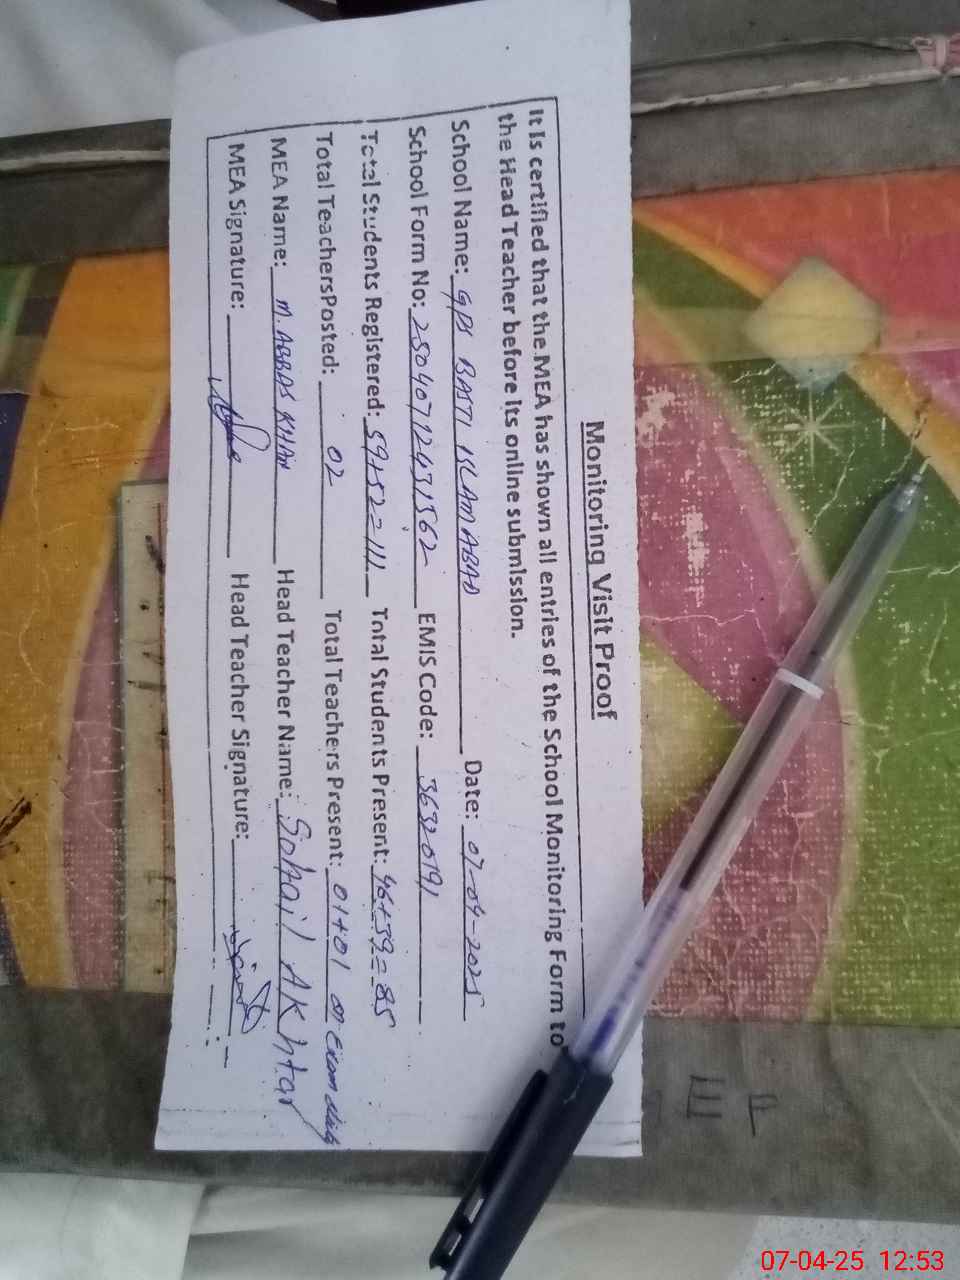 Monitoring Visit Proof
It is certified that the MEA has shown all entries of the School Monitoring Form to
the Head Teacher before its online submission.
School Name: GPS BASTI ISLAMABAD Date: 07-04-2025
School Form No: 25040712431562 EMIS Code: 36320191
Total Students Registered: 59+52=111 Total Students Present: 46+39=85
Total TeachersPosted: 02 Total Teachers Present: 01+01 on Exam duty
MEA Name: M. ABBAS KHAN Head Teacher Name: Sohail AKhtar
MEA Signature: Head Teacher Signature:
07-04-25 12:53